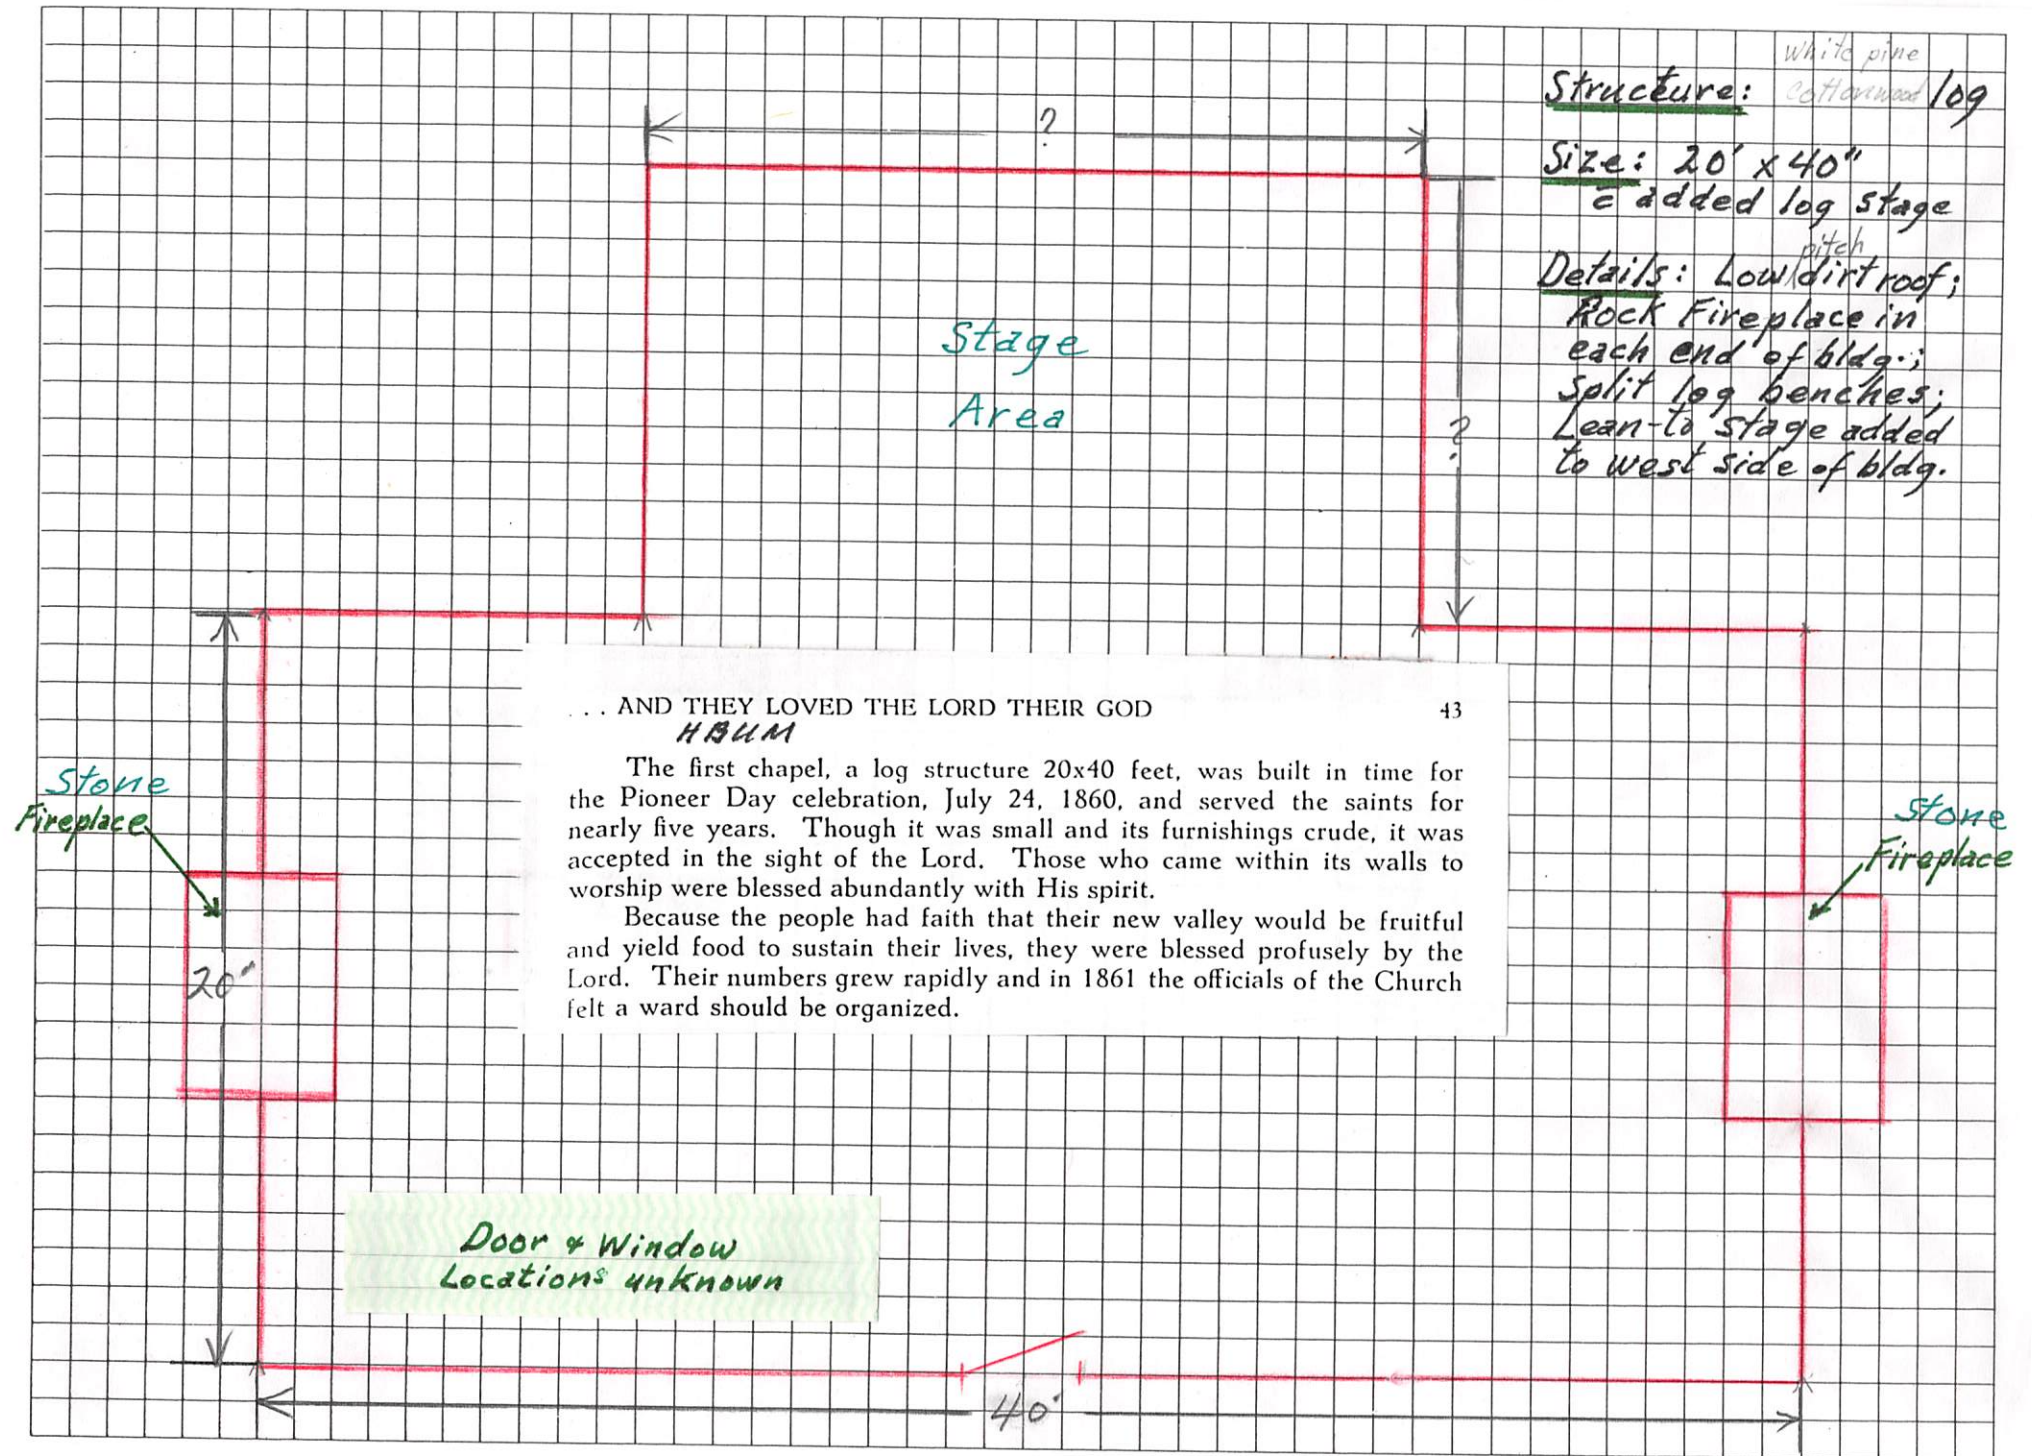 white pine
Structure: cottonwood log
Size: 20' x 40"
c̄ added log stage
pitch
Details: Low/dirt roof;
Rock Fireplace in
each end of bldg.;
Split log benches;
Lean-to stage added
to west side of bldg.
?
Stage
Area
?
... AND THEY LOVED THE LORD THEIR GOD 43
HBUM
The first chapel, a log structure 20x40 feet, was built in time for
the Pioneer Day celebration, July 24, 1860, and served the saints for
nearly five years. Though it was small and its furnishings crude, it was
accepted in the sight of the Lord. Those who came within its walls to
worship were blessed abundantly with His spirit.
Because the people had faith that their new valley would be fruitful
and yield food to sustain their lives, they were blessed profusely by the
Lord. Their numbers grew rapidly and in 1861 the officials of the Church
felt a ward should be organized.
Stone
Fireplace
20"
Stone
Fireplace
Door & Window
Locations unknown
40'